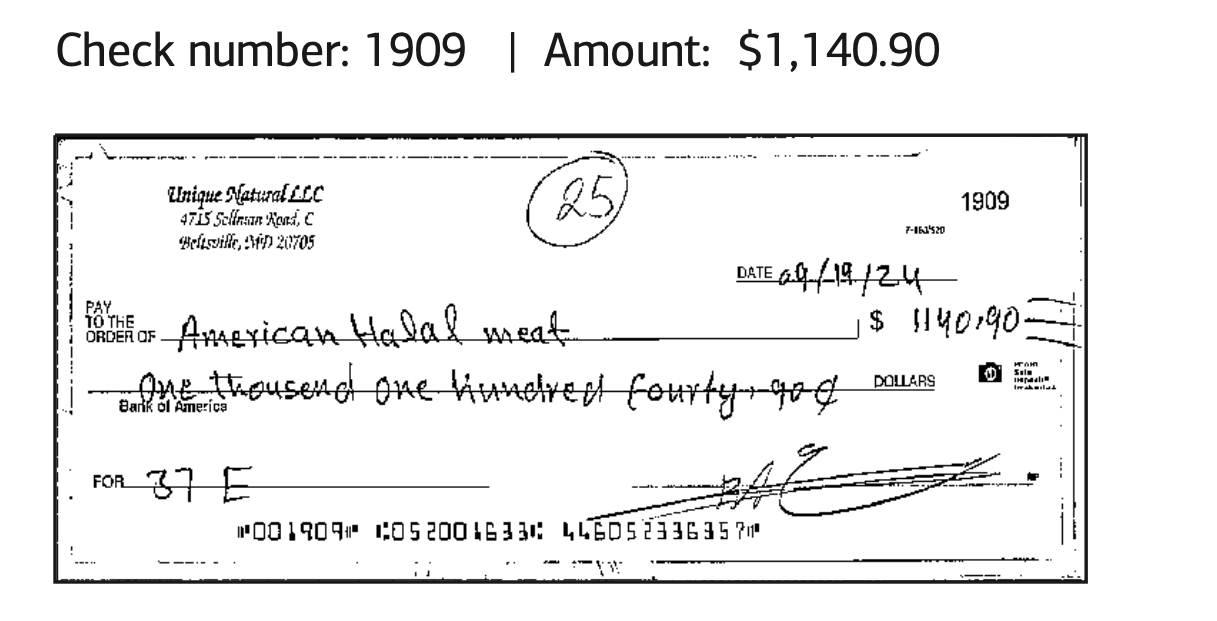 Check number: 1909 | Amount: $1,140.90
25
Unique Natural LLC
4715 Sellman Road, C
Beltsville, MD 20705
1909
7-163/520
DATE 09/19/24
PAY
TO THE
ORDER OF American Halal meat $ 1140.90
One thousend one hundred fourty, 90¢ DOLLARS
Bank of America
FOR 37 E
⑈001909⑈ ⑆052001633⑆ 446052336357⑈